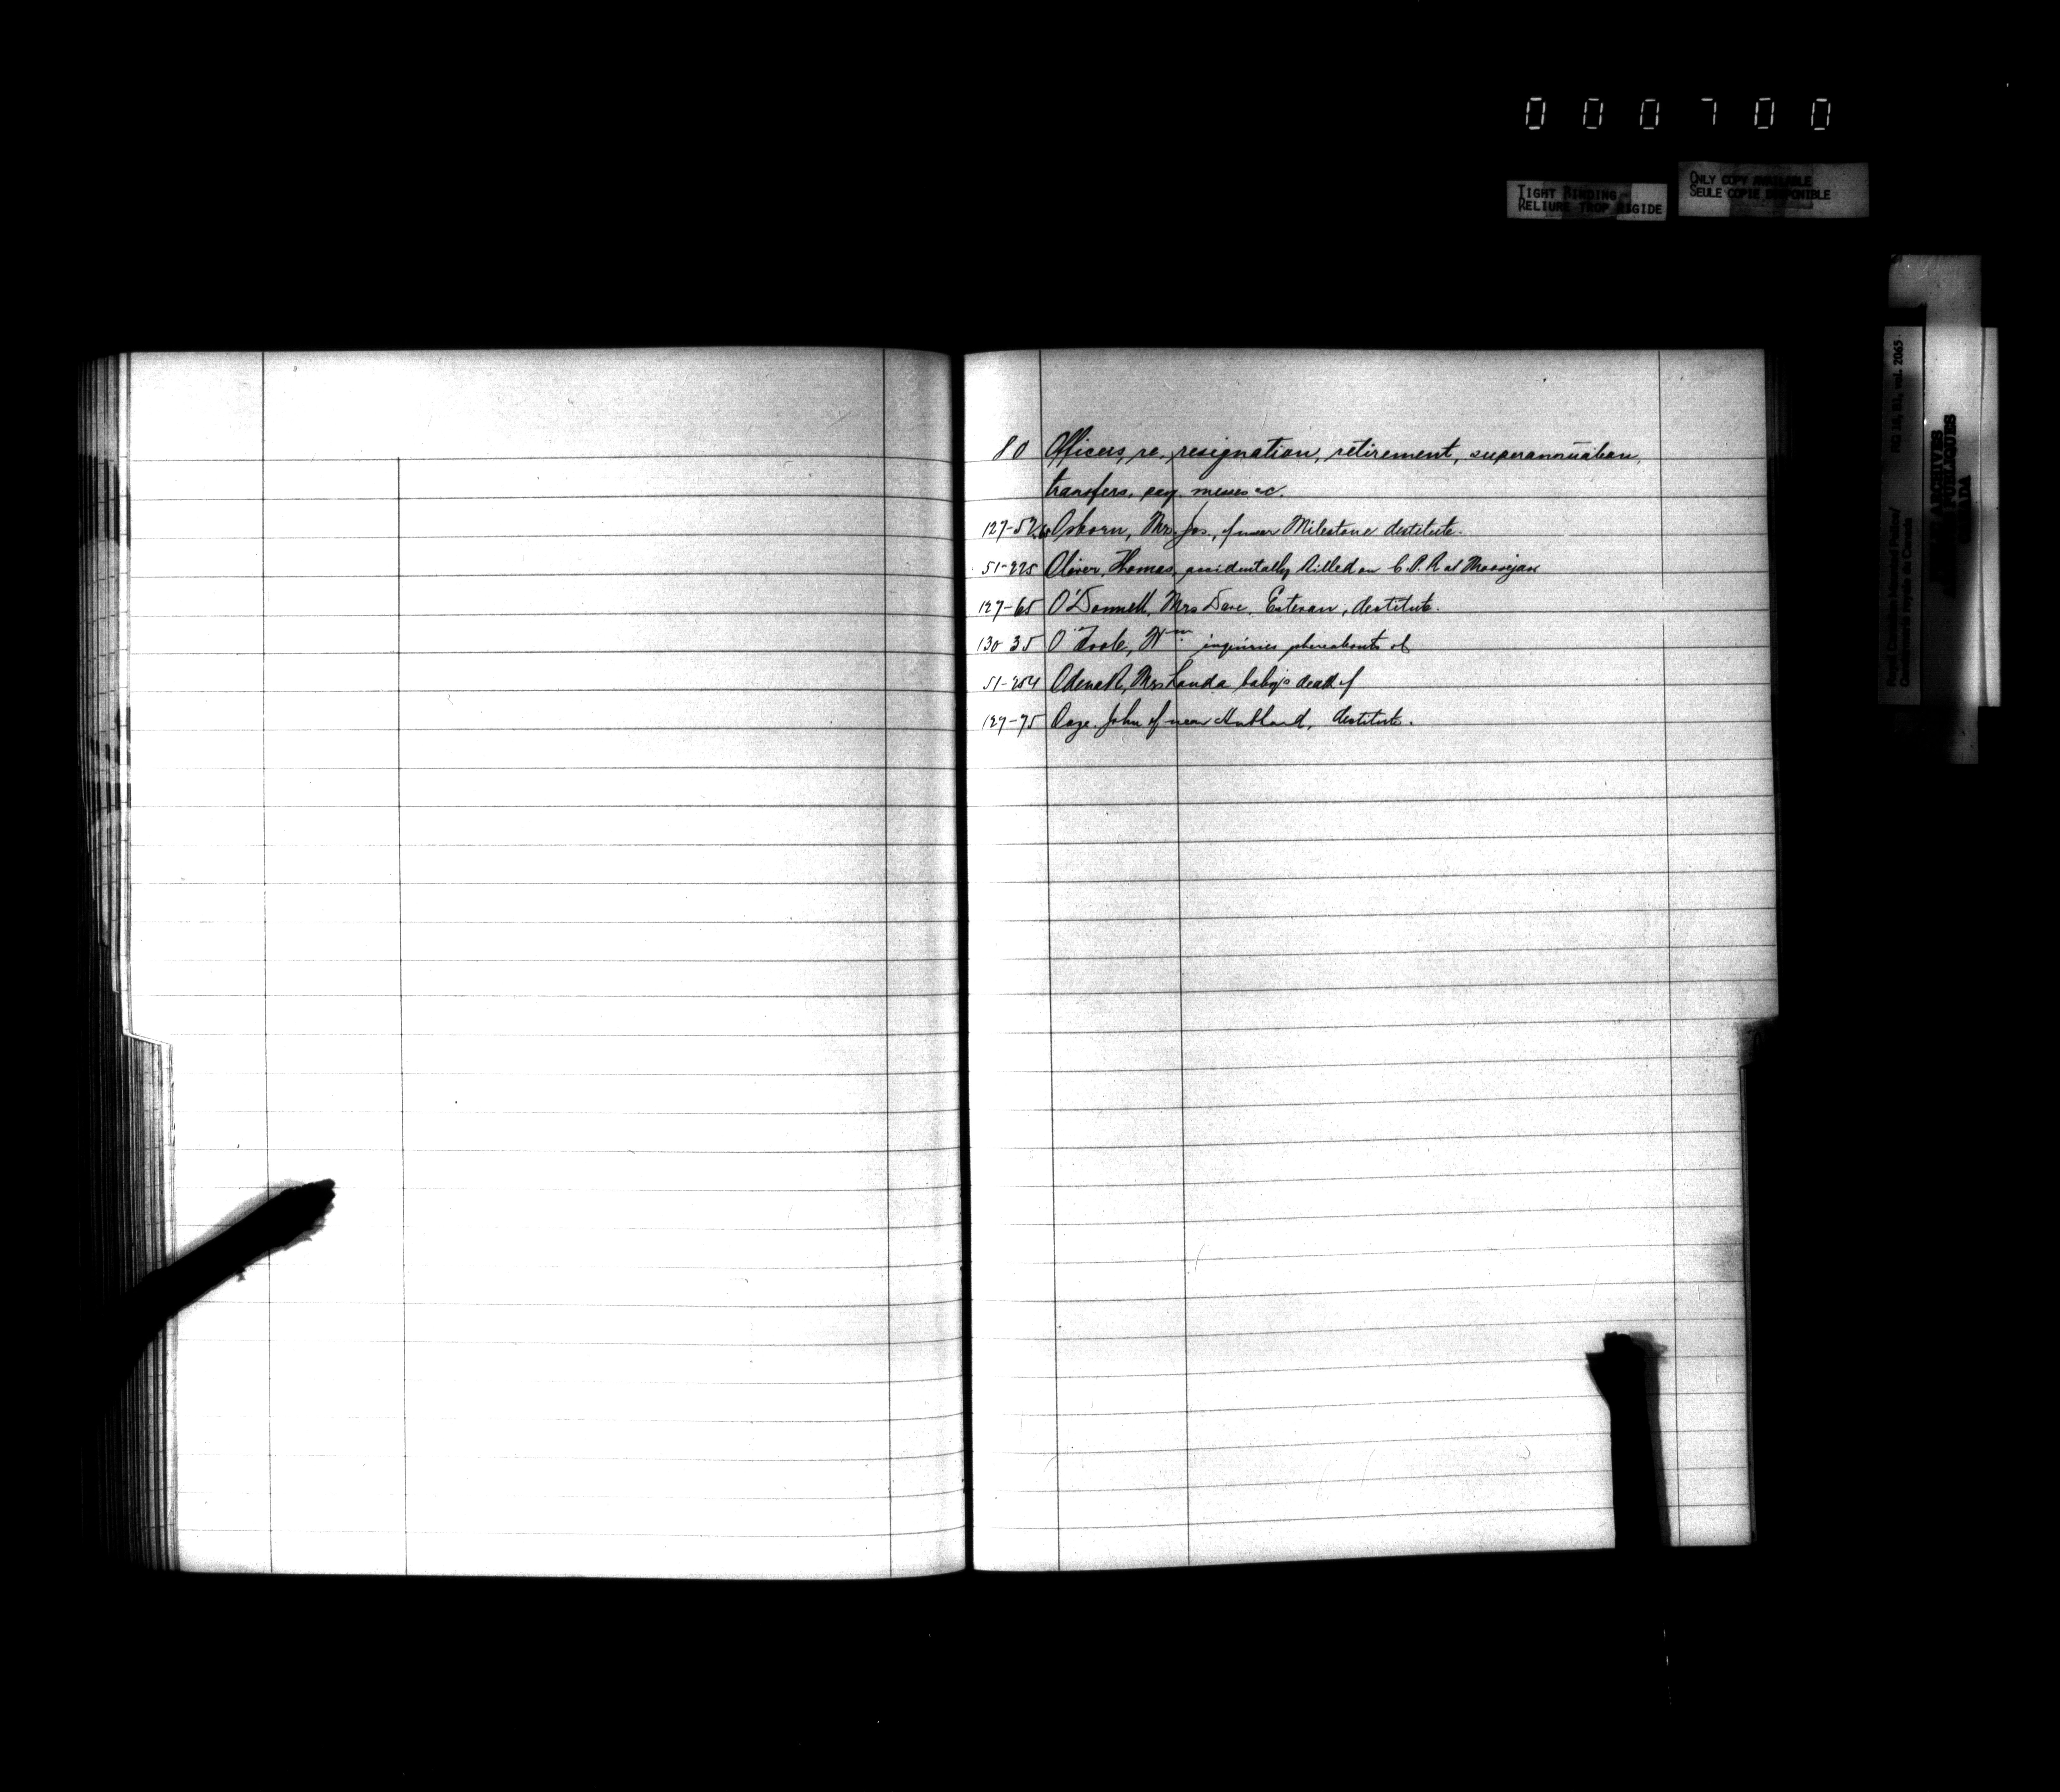 000700
TIGHT BINDING
RELIURE TROP RIGIDE
ONLY COPY AVAILABLE
SEULE COPIE DISPONIBLE
Royal Canadian Mounted Police/
Gendarmerie royale du Canada
RG 18, B1, vol. 2065
ARCHIVES
PUBLIQUES
CANADA
80 Officers, re, resignation, retirement, superannuation,
transfers, pay, messes &c.
127-57 Osborn, Mrs. Jos., of near Milestone destitute.
51-225 Oliver, Thomas, accidentally killed on C.P.R at Moosejaw
127-65 O'Donnell, Mrs Dave, Estevan, destitute.
130-35 O'Toole, Wm inquiries whereabouts of
51-254 Mrs baby's death of
127-75 John of near destitute.